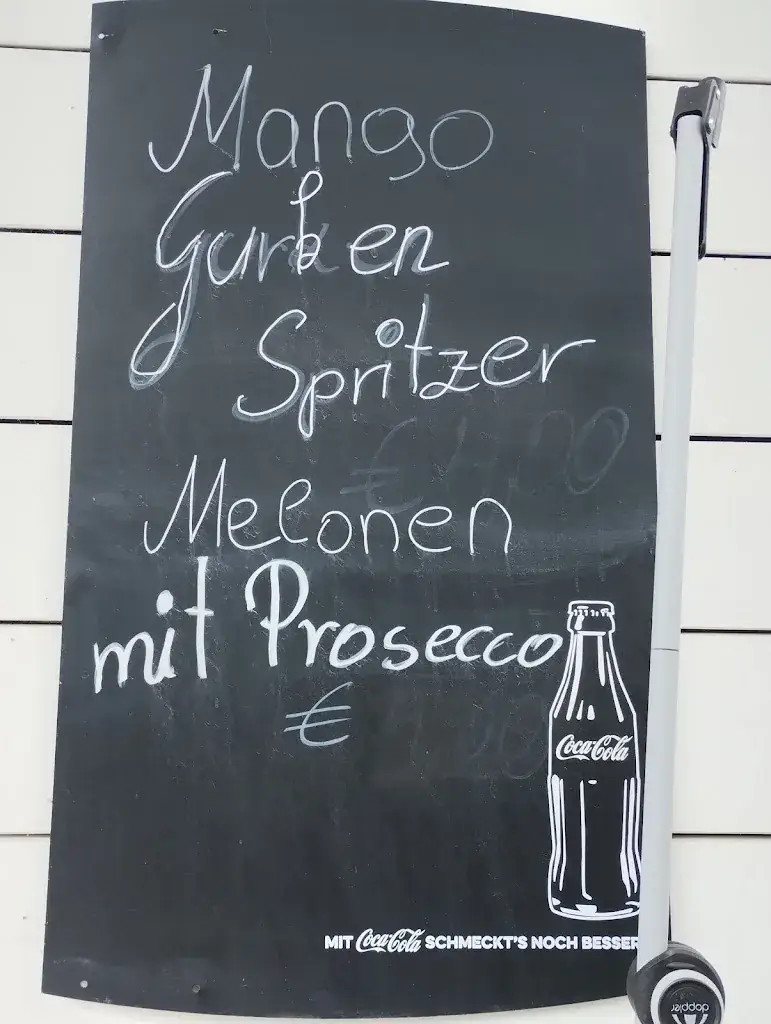 Mango
Gurken
Spritzer
Melonen
mit Prosecco
€
Coca-Cola
MIT Coca-Cola SCHMECKT'S NOCH BESSER
doppler